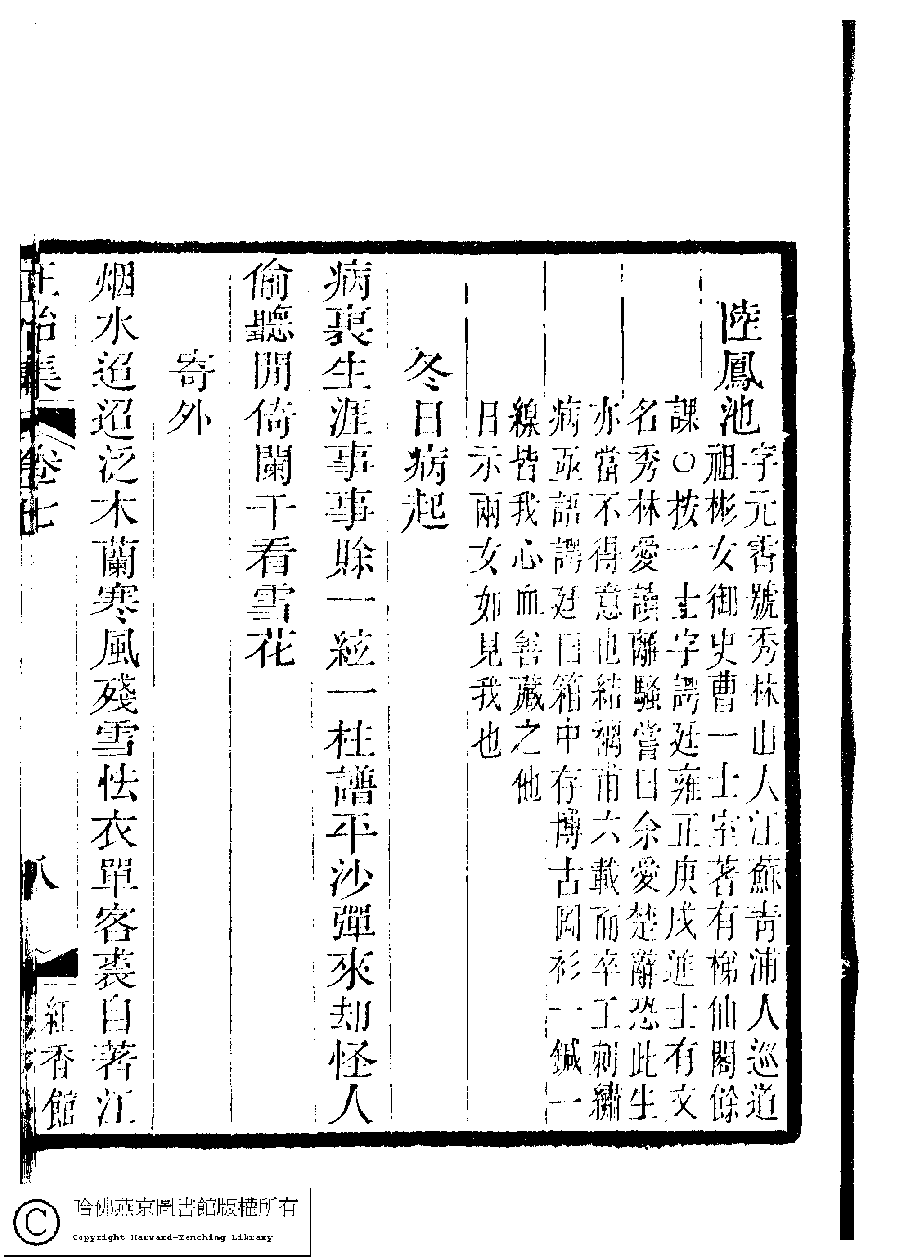 陸鳳池
字元宵號秀林山人江蘇青浦人巡道
祖彬女御史曹一士室著有梯仙閣餘
課〇按一士字諤廷雍正庚戌進士有文
名秀林愛讀離騷嘗曰余愛楚辭恐此生
亦當不得意也結褵甫六載而卒工刺繡
病亟語諤廷曰箱中存博古圖衫一鍼一
線皆我心血善藏之他
日示兩女如見我也
冬日病起
病裏生涯事事賒一絃一柱譜平沙彈來却怪人
偷聽閒倚闌干看雪花
寄外
烟水迢迢泛木蘭寒風殘雪怯衣單客裘自著江
正始集 卷七 八 紅香館
哈佛燕京圖書館版權所有
Copyright Harvard-Yenching Library